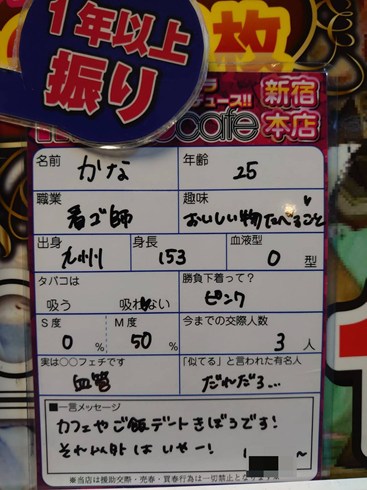 1年以上
振り
枚
ュース!!
cafe
新宿
本店
名前 かな 年齢 25
職業 看ゴ師 趣味 おいしい物たべること
出身 九州 身長 153 血液型 O 型
タバコは 吸う 吸わない 勝負下着って? ピンク
S度 0 % M度 50 % 今までの交際人数 3 人
実は○○フェチです 血管 「似てる」と言われた有名人 だれだろ...
■一言メッセージ
カフェやご飯デートきぼうです!
それ以外はいやー! 1 〜
※当店は援助交際・売春・買春行為は一切禁止となります